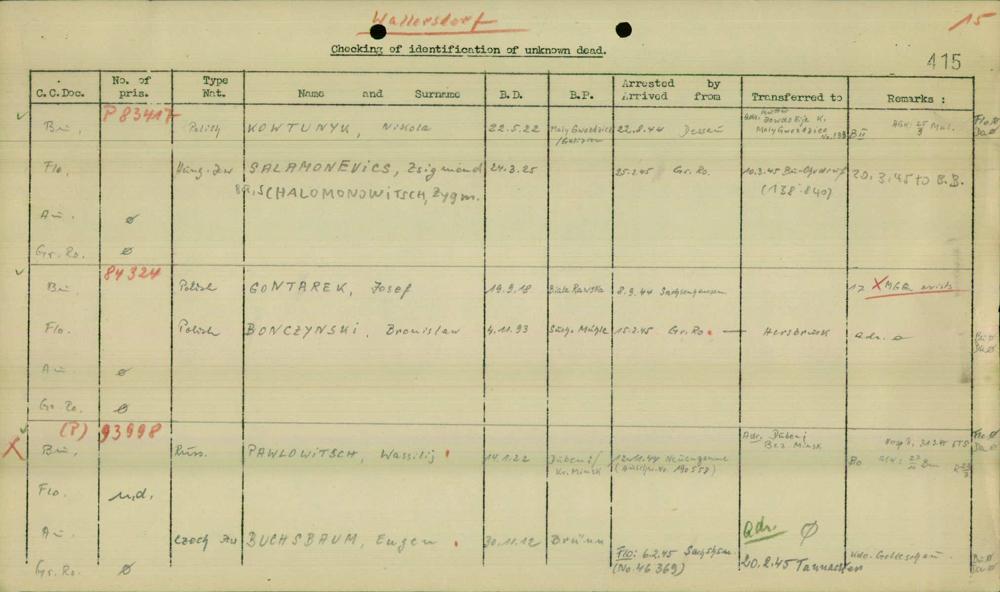 Wallersdorf
15
Checking of identification of unknown dead.
415
C.C.Doc. No. of pris. Type Nat. Name and Surname B.D. B.P. Arrested by Arrived from Transferred to Remarks :
P 83417
Bu. Polish KOWTUNYK, Nikola 22.5.22 Maly Gwozdzice 22.8.44 Dessau Maly Gwozdzice BII
Flo. Ø
Da Ø
Flo. Hung. Jew SALAMONEVICS, Zsigmond 24.3.25 25.2.45 Gr. Ro. 10.3.45 20.3.45 to B.B.
SCHALOMONOWITSCH, Zygm. (138.840)
Au. Ø
Gr. Ro. Ø
84324
Bu. Polish GONTAREK, Josef 19.9.18 Biala Rawska 8.9.44 Sachsenhausen 17 X MGR exists
Flo. Polish BONCZYNSKI, Bronislaw 4.11.93 15.2.45 Gr. Ro. — Hersbruck Adr. Ø
Au. Ø
Gr. Ro. Ø
(P) 93998
X Bu. Russ. PAWLOWITSCH, Wassilij 14.1.22 Kr. Minsk 12.11.44 Neuengamme Bez Minsk Bo
Flo. n.d.
Au. Czech Jew BUCHSBAUM, Eugen 30.11.12 Brünn Adr. Ø
Flo: 6.2.45
Gr. Ro. Ø (No. 46369) 20.2.45